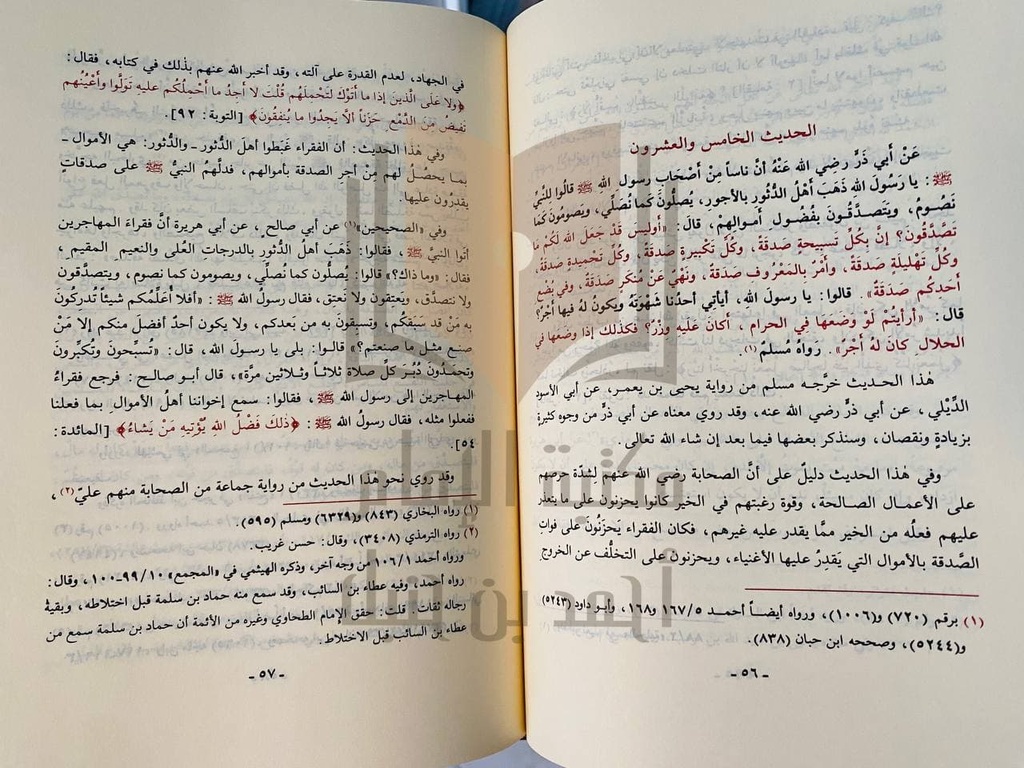 الحديث الخامس والعشرون
عَنْ أَبي ذَرٍّ رضي الله عَنْهُ أنَّ ناساً مِنْ أَصْحَابِ رسولِ الله ﷺ قالُوا للنَّبيِّ
ﷺ: يا رَسُولَ الله ذَهَبَ أهْلُ الدُّثورِ بالأجورِ، يُصلُّونَ كَما نُصَلِّي، ويَصومُونَ كَمَا
نَصُومُ، ويَتَصدَّقُونَ بفُضُولِ أموَالِهمْ، قالَ: «أوليسَ قَدْ جَعَلَ الله لَكُمْ مَا
تَصَّدَّقُون؟ إنَّ بكُلِّ تَسبيحةٍ صَدقةً، وكُلِّ تَكبيرةٍ صَدقَةً، وكُلِّ تَحْميدةٍ صَدقةً،
وكُلِّ تَهْليلةٍ صَدقَةً، وأمْرٌ بِالمَعْروفِ صَدقَةٌ، ونَهْيٌ عَنْ مُنكَرٍ صَدقَةٌ، وفي بُضْعِ
أحدِكُم صَدقَةٌ». قالوا: يا رسولَ الله، أيأتي أحدُنا شَهْوَتَهُ ويكونُ لهُ فيها أجْرٌ؟
قال: «أرأيتُمْ لَوْ وَضعَها في الحرامِ، أكانَ عَلَيهِ وِزْرٌ؟ فكذلك إذا وضَعَها في
الحلالِ كانَ لهُ أجْرٌ». رَواهُ مُسلمٌ(١).
هٰذا الحديث خرَّجه مسلم من رواية يحيى بن يعمر، عن أبي الأسود
الدِّيْلي، عن أبي ذرٍّ رضي الله عنه، وقد روي معناه عن أبي ذرٍّ من وجوه كثيرةٍ
بزيادةٍ ونقصان، وسنذكر بعضها فيما بعد إن شاء الله تعالى.
وفي هٰذا الحديث دليلٌ على أنَّ الصحابة رضي الله عنهم لِشدَّة حرصهم
على الأعمال الصالحة، وقوة رغبتهم في الخير كانوا يحزنون على ما يتعذر
عليهم فعلُه من الخير ممَّا يقدر عليه غيرهم، فكان الفقراء يَحزَنُونَ على فواتِ
الصَّدقة بالأموال التي يَقدرُ عليها الأغنياء، ويحزنون على التخلُّف عن الخروج
(١) برقم (٧٢٠) و(١٠٠٦)، ورواه أيضاً أحمد ١٦٧/٥ و١٦٨، وأبو داود (٥٢٤٣)
و(٥٢٤٤)، وصححه ابن حبان (٨٣٨).
- ٥٦ -
في الجهاد، لعدم القدرة على آلته، وقد أخبر الله عنهم بذٰلك في كتابه، فقال:
﴿ولا عَلَى الَّذينَ إذا ما أتَوْكَ لتَحْمِلَهُم قُلْتَ لا أجِدُ ما أحْمِلُكُم عليه تَوَلَّوا وأعْيُنُهم
تَفيضُ مِنَ الدَّمْعِ حَزَناً ألَّا يَجدُوا ما يُنفقُونَ﴾ [التوبة: ٩٢].
وفي هٰذا الحديث: أن الفقراء غَبَطوا أهلَ الدُّثور ـ والدُّثور: هي الأموال ـ
بما يحصُلُ لهم مِنْ أجرِ الصدقة بأموالهم، فدلَّهمُ النبيُّ ﷺ على صدقاتٍ
يقدِرُون عليها.
وفي «الصحيحين»(١) عن أبي صالح، عن أبي هريرة أنَّ فقراءَ المهاجرين
أتَوا النبيَّ ﷺ، فقالوا: ذَهَبَ أهلُ الدُّثورِ بالدرجات العُلى والنعيم المقيم،
فقال: «وما ذاك؟» قالوا: يُصلُّون كما نُصلِّي، ويصومون كما نصوم، ويتصدَّقون
ولا نتصدَّق، ويَعتِقون ولا نَعتِق، فقال رسول الله ﷺ: «أفلا أُعَلِّمُكم شيئاً تُدرِكُونَ
به مَنْ قد سبقَكُم، وتسبقونَ به من بعدكم، ولا يكون أحدٌ أفضلَ منكم إلا مَنْ
صنع مثل ما صنعتم؟» قالوا: بلى يا رسول الله، قال: «تُسبِّحونَ وتُكبِّرون
وتحمَدُون دُبُرَ كلِّ صلاة ثلاثاً وثلاثين مرَّة»، قال أبو صالح: فرجع فقراءُ
المهاجرين إلى رسول الله ﷺ، فقالوا: سمع إخواننا أهلُ الأموالِ بما فعلنا
ففعلوا مثله، فقال رسول الله ﷺ: ﴿ذٰلكَ فَضْلُ الله يُؤتيهِ مَنْ يَشاءُ﴾ [المائدة:
٥٤].
وقد روي نحو هٰذا الحديث من رواية جماعة من الصحابة منهم عليّ(٢)،
(١) رواه البخاري (٨٤٣) و(٦٣٢٩) ومسلم (٥٩٥)
(٢) رواه الترمذي (٣٤٠٨)، وقال: حسن غريب.
ورواه أحمد ١٠٦/١ من وجه آخر، وذكره الهيثمي في «المجمع» ٩٩/١٠-١٠٠، وقال:
رواه أحمد، وفيه عطاء بن السائب، وقد سمع منه حماد بن سلمة قبل اختلاطه، وبقية
رجاله ثقات. قلت: حقق الإمام الطحاوي وغيره من الأئمة أن حماد بن سلمة سمع من
عطاء بن السائب قبل الاختلاط.
- ٥٧ -
مكتبة الإمام
أحمد بن